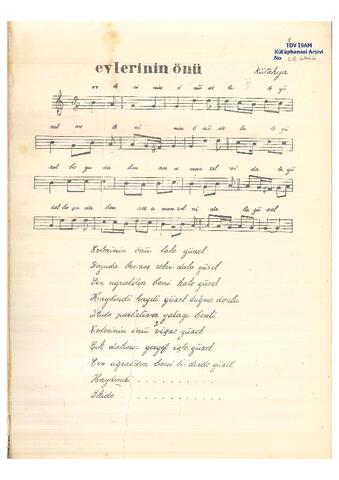 TDV İSAM
Kütüphanesi Arşivi
No
evlerinin önü
Kütahya
ev le ri nin ö nü de le gü
zel ev le ri nin ö nü de le gü
zel bo yu da ben ze a man sel vi da le gü zel
bo yu da ben ze a man sel vi da le gü zel
Evlerinin önü lale güzel
Boyuda benzer selvi dala güzel
Sen uğrattın beni hale güzel
Haydindi haydi güzel düğme donlu
İkide
Evlerinin önü güzel
Çık dalına gergef işle güzel
Sen uğrattın beni bu derde güzel
Haydindi . . . . . . . . . . . .
İkide . . . . . . . . . . . .